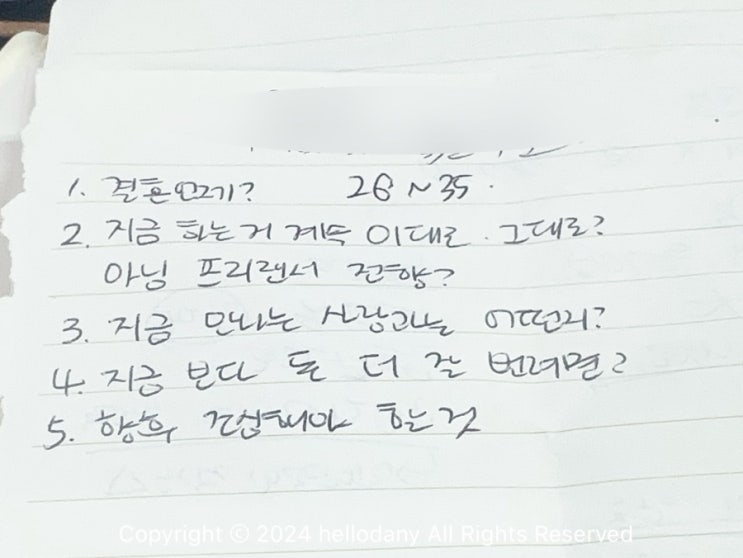 1. 결혼언제? 28~35.
2. 지금 하는거 계속 이대로. 그대로?
아님 프리랜서 전향?
3. 지금 만나는 사람과는 어떤지?
4. 지금 보다 돈 더 잘 벌려면?
5. 향후 조심해야 하는것
Copyright © 2024 hellodany All Rights Reserved